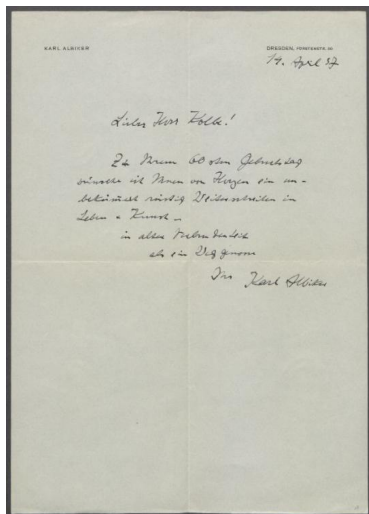 KARL ALBIKER
DRESDEN, FÜRSTENSTR. 26
14. April 37
Lieber Herr Kolbe!
Zu Ihrem 60sten Geburtstag
wünsche ich Ihnen von Herzen ein un-
bekümmert rüstig Weiterschreiten in
Leben u Kunst –
in alter Verbundenheit
als ein Weggenosse
Ihr Karl Albiker